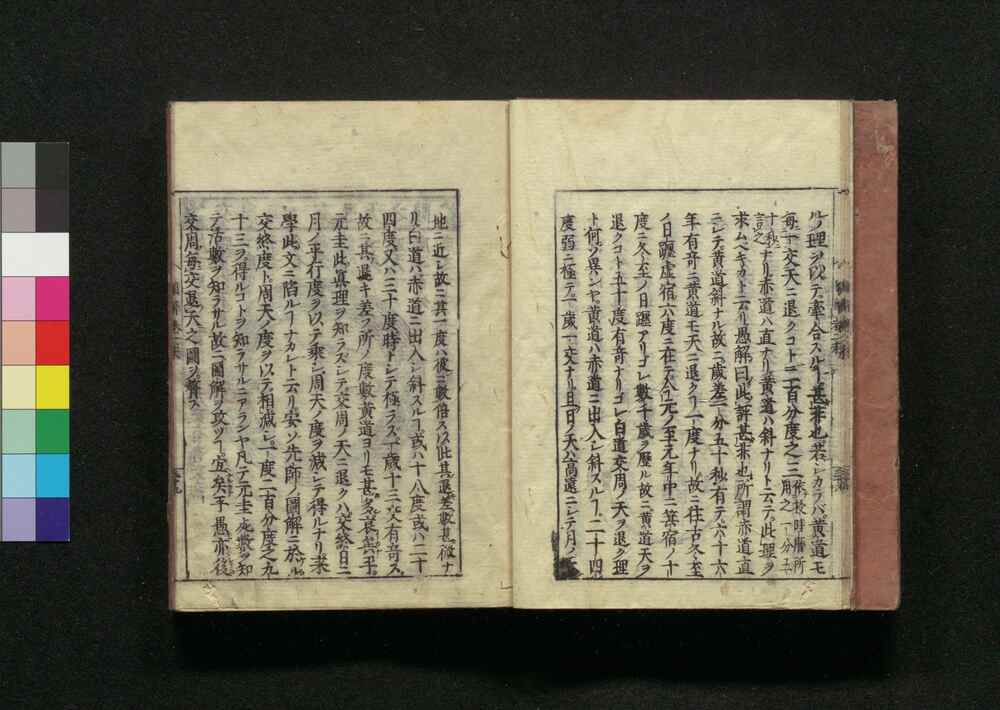 ノ理ヲ以テ牽合スルヿ甚非也若シカラバ黄道モ
毎一交天ニ退クコト二百分度之三
ナリ赤道ハ直ナリ黄道ハ斜ナリト云テ此理ヲ
求ムベキカト云リ愚解曰此評甚非也所謂赤道直
ニシテ黄道斜ナル故ニ歳差一分五十秒有テ六十六
年有奇ニ黄道モ天ニ退クヿ一度ナリ故ニ往古冬至
ノ日躔虚宿六度ニ在テ元ノ至元年中ニ箕宿ノ十
度ニ冬至ノ日躔アリコレ數千歳ヲ歴ル故ニ黄道天ヲ
退クコト五十度有奇ナリコレ白道交周ノ天ヲ退ク理
ト何ノ異ンヤ黄道ハ赤道ニ出入シ斜スルヿ二十四
度弱ニ極テ一歳一交ナリ且日ノ天ハ高遠ニシテ月ノ天
地ニ近シ故ニ其一度ハ彼ニ數倍ス以此其退差數甚微ナ
リ白道ハ赤道ニ出入シ斜スルヿ或ハ十八度或ハ二十
四度又ハ三十度時トシテ極ラス一歳十三交有奇ス
故ニ其退キ差フ所ノ度數黄道ヨリモ甚多
元圭此眞理ヲ知ラズシテ交周ノ天ニ退クハ交終日ニ
月ノ平行度ヲ以テ乘シ周天ノ度ヲ減シテ得ルナリ末
學此文ニ陷ルヿナカレト云リ安ソ先師ノ圖解ニ於
交終ノ度ト周天ノ度ヲ以テ相減シ一度二百分度之九
十三ヲ得ルコトヲ知ラサルニアランヤ凡テ元圭死數ヲ知
テ活數ヲ知ラサル故ニ圖解ヲ攻ツ宜矣乎愚亦後
交周毎交退天之圖ヲ贅ス